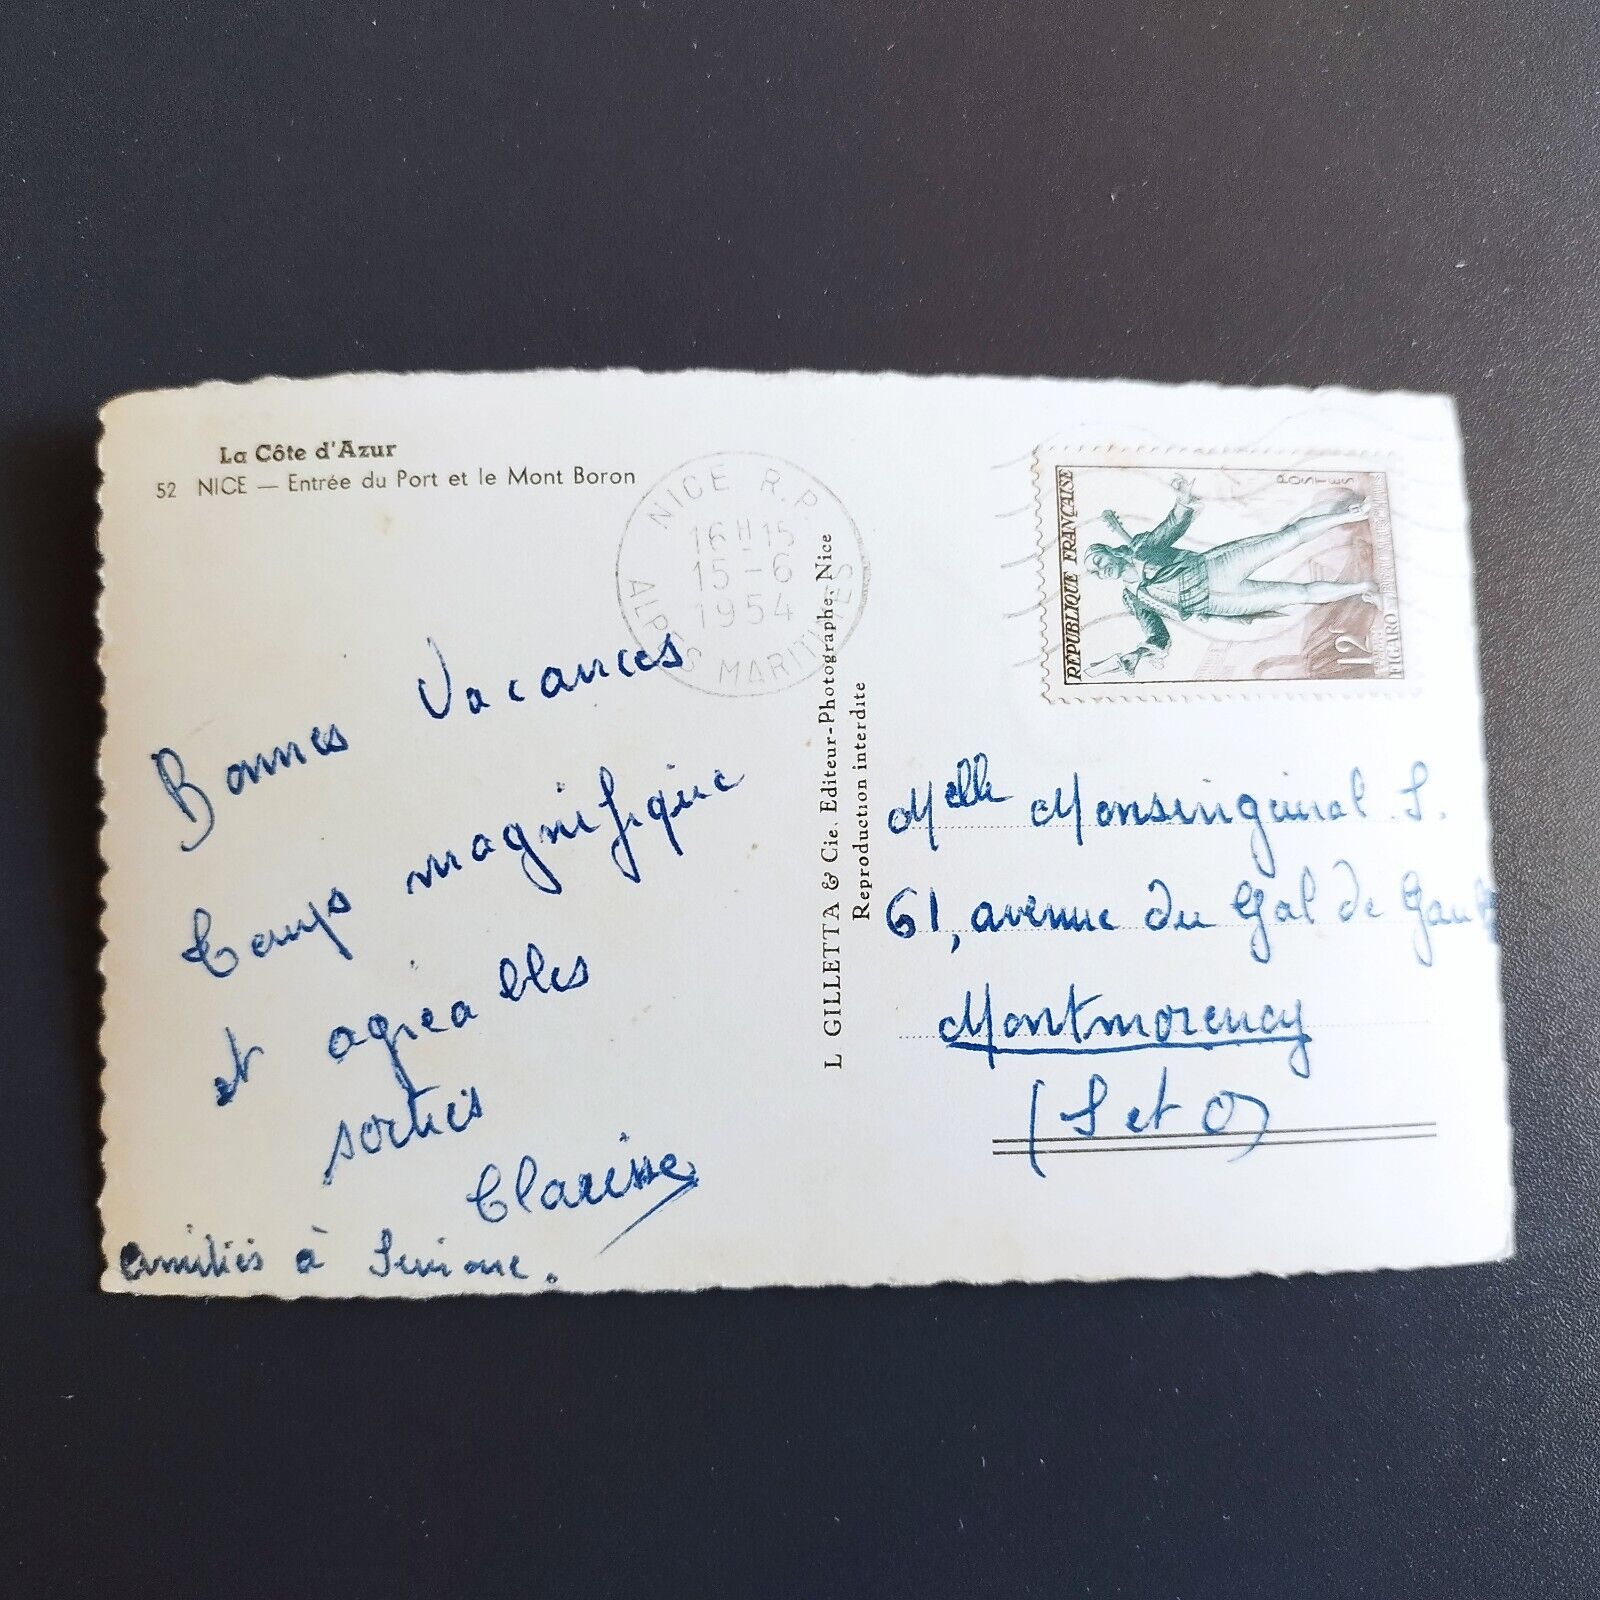 La Côte d'Azur
52 NICE — Entrée du Port et le Mont Boron
NICE R.P.
16 H 15
15-6
1954
ALPES MARITIMES
Bonnes Vacances
Temps magnifique
et agréables
sorties
Clarisse
Amitiés à Simone.
L GILLETTA & Cie. Editeur-Photographe, Nice
Reproduction interdite
REPUBLIQUE FRANÇAISE
POSTES
12F
FIGARO
Melle S.
61, avenue du Gal de
Montmorency
(S et O)